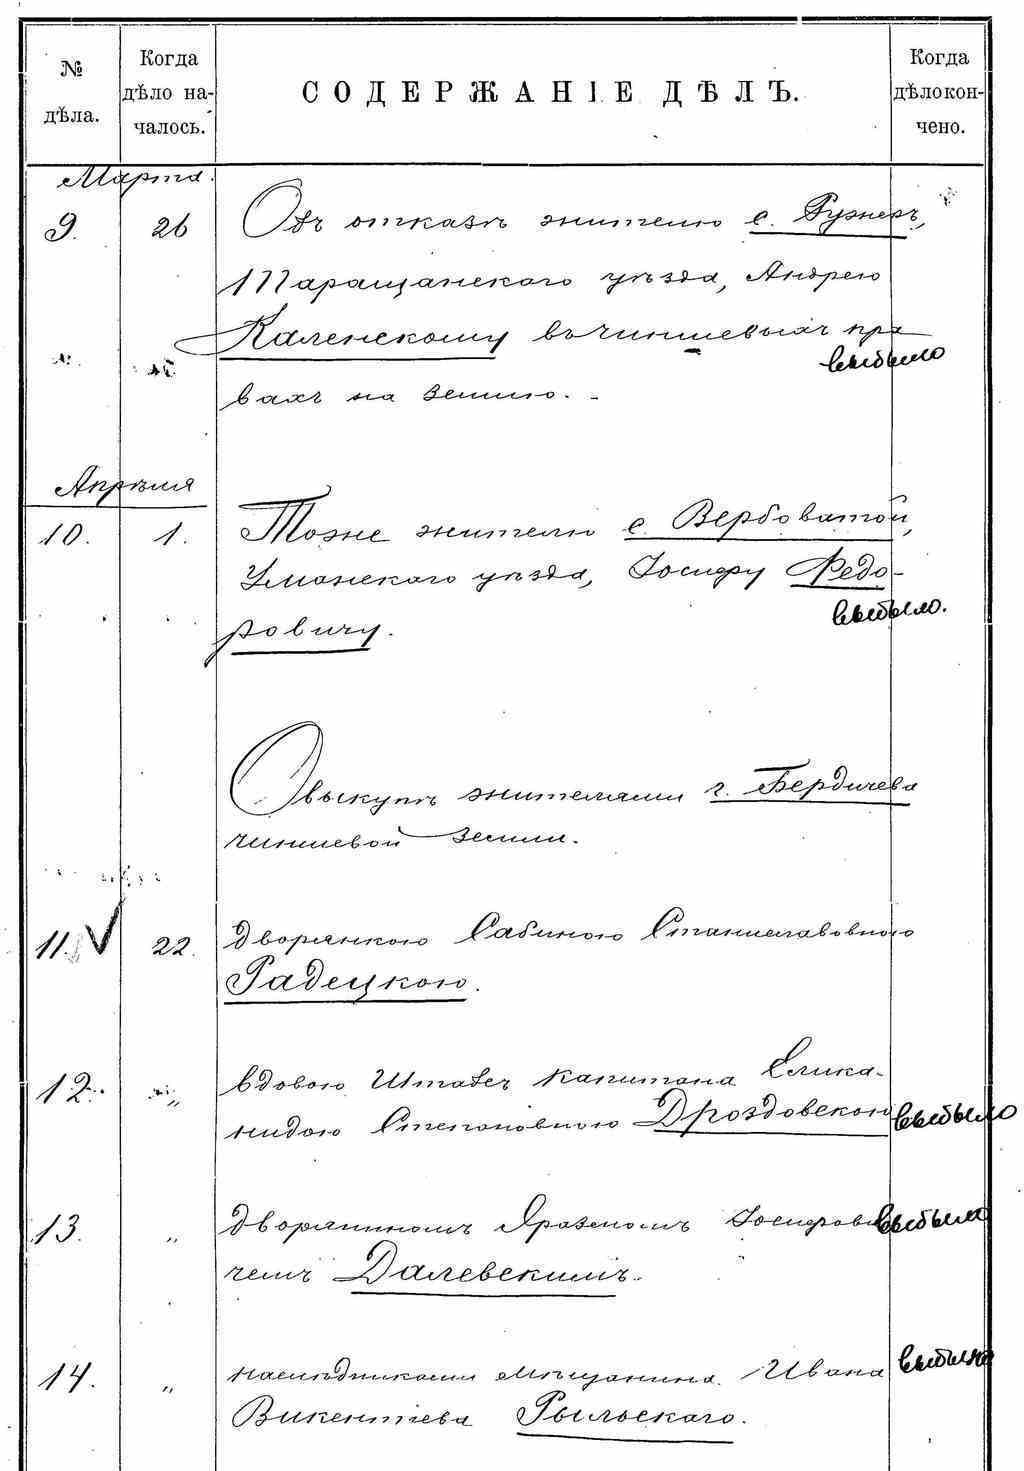 № дѣла.
Когда дѣло началось.
СОДЕРЖАНІЕ ДѢЛЪ.
Когда дѣло кончено.
Марта.
9. 26 Объ отказѣ жителю с. Ружекъ,
Таращанскаго уѣзда, Андрею
Каленскому въ чиншевыхъ пра
выбыло
вахъ на землю. -
Апрѣля
10. 1. Тоже жителю с. Вербоватой,
Уманскаго уѣзда, Іосифу Федо-
выбыло.
ровичу.
О выкупѣ жителями г. Бердичева
чиншевой земли.
11. V 22. дворянкою Сабиною Станиславовною
Радецкою.
12. " вдовою Штабсъ капитана Елика-
нидою Степановною Дроздовскою выбыло
13. " дворяниномъ Іосифови выбыло
чемъ Далевскимъ.
14. " наслѣдниками мѣщанина Ивана выбыло
Викентіева Рыльскаго.